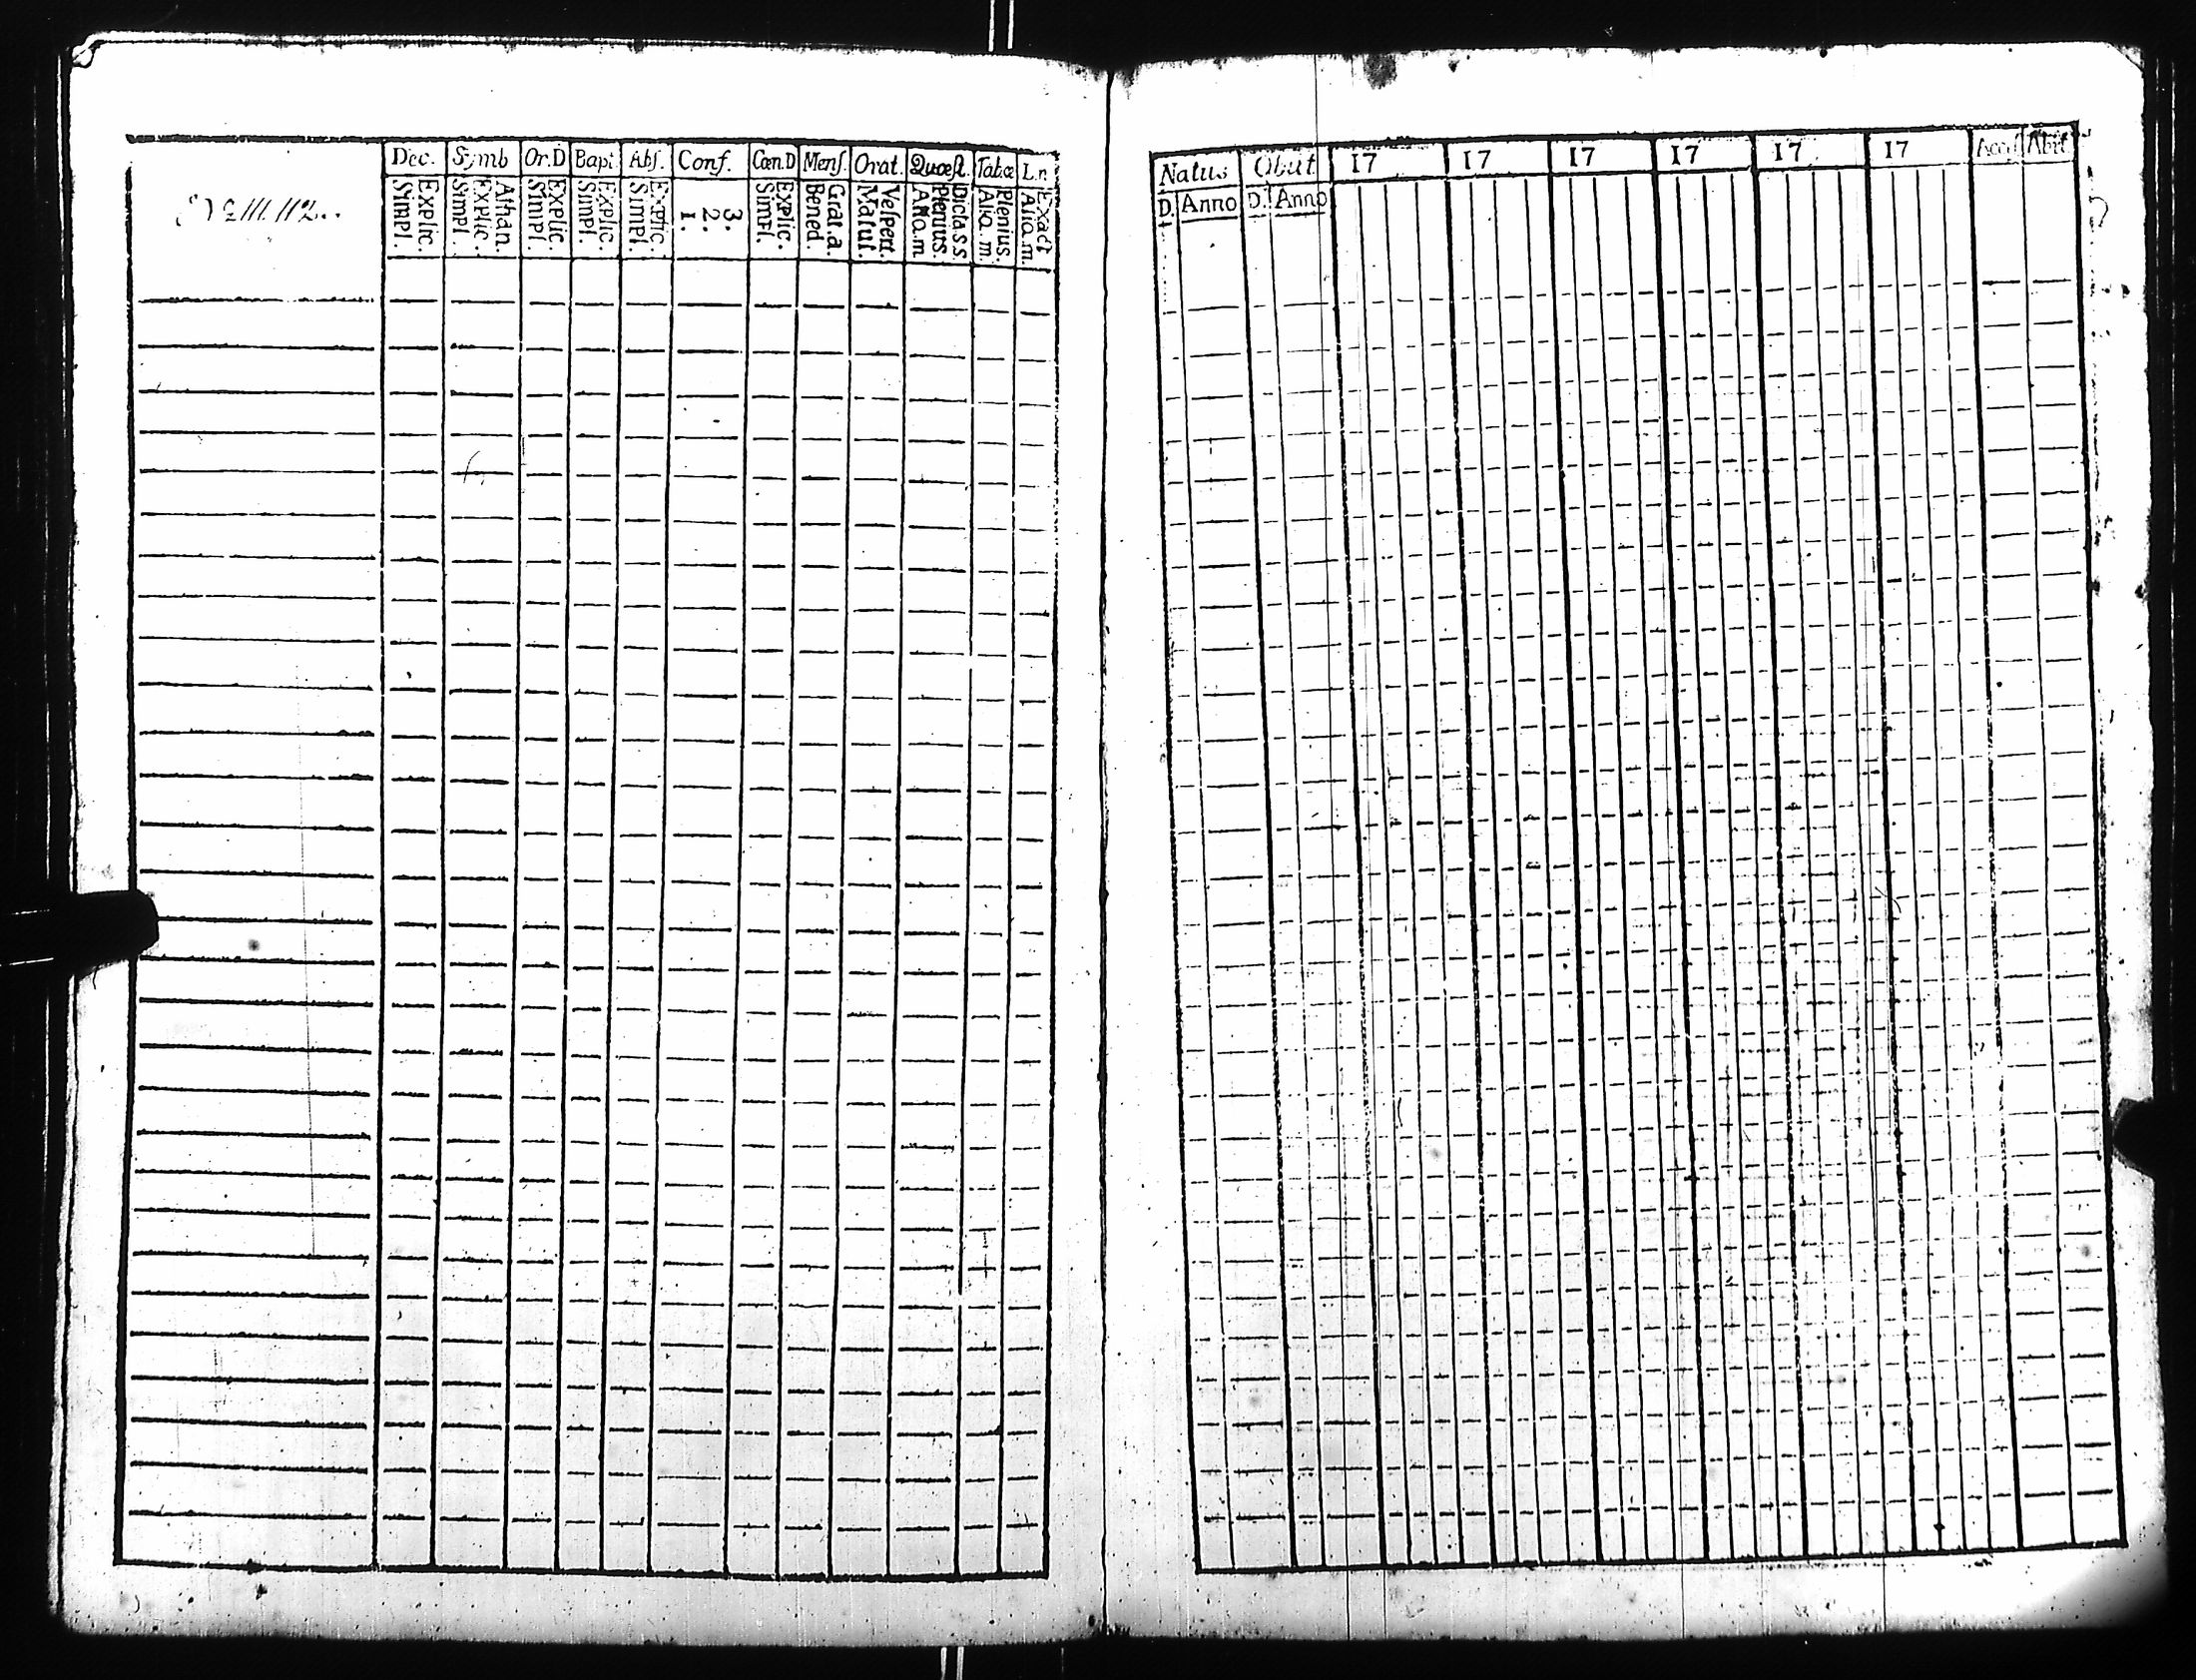 Dec. Symb Or.D Bapt Abs. Conf. Cœn.D Mens. Orat. Quæst. Tabæ L.n
Explic. Simpl.
Athan. Explic. Simpl.
Explic. Simpl.
Explic. Simpl.
Explic. Simpl.
3. 2. 1.
Explic. Simpl.
Grat.a. Bened.
Vespert. Matut.
Dictas s. Plenius. Aliq.m
Plenius. Aliq.m.
Exact Aliq.m.
Natus Obiit 17 17 17 17 17 17 Acces Abiit
D. Anno D. Anno